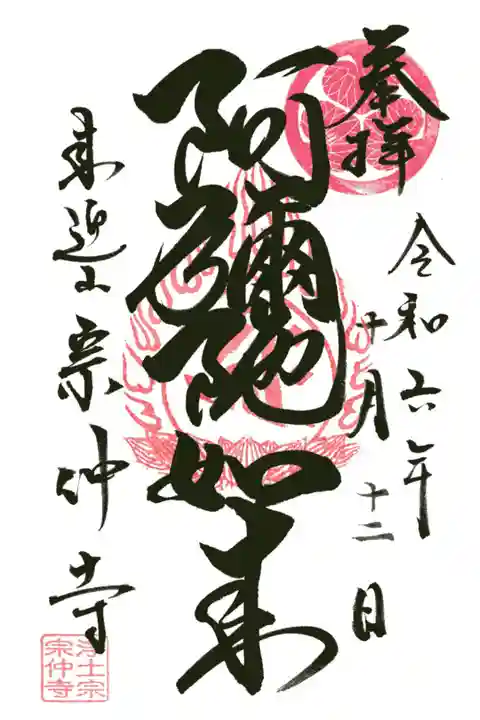 奉拝
令和六年
十月十二日
阿彌陀如来
来迎山宗仲寺
浄土宗
宗仲寺